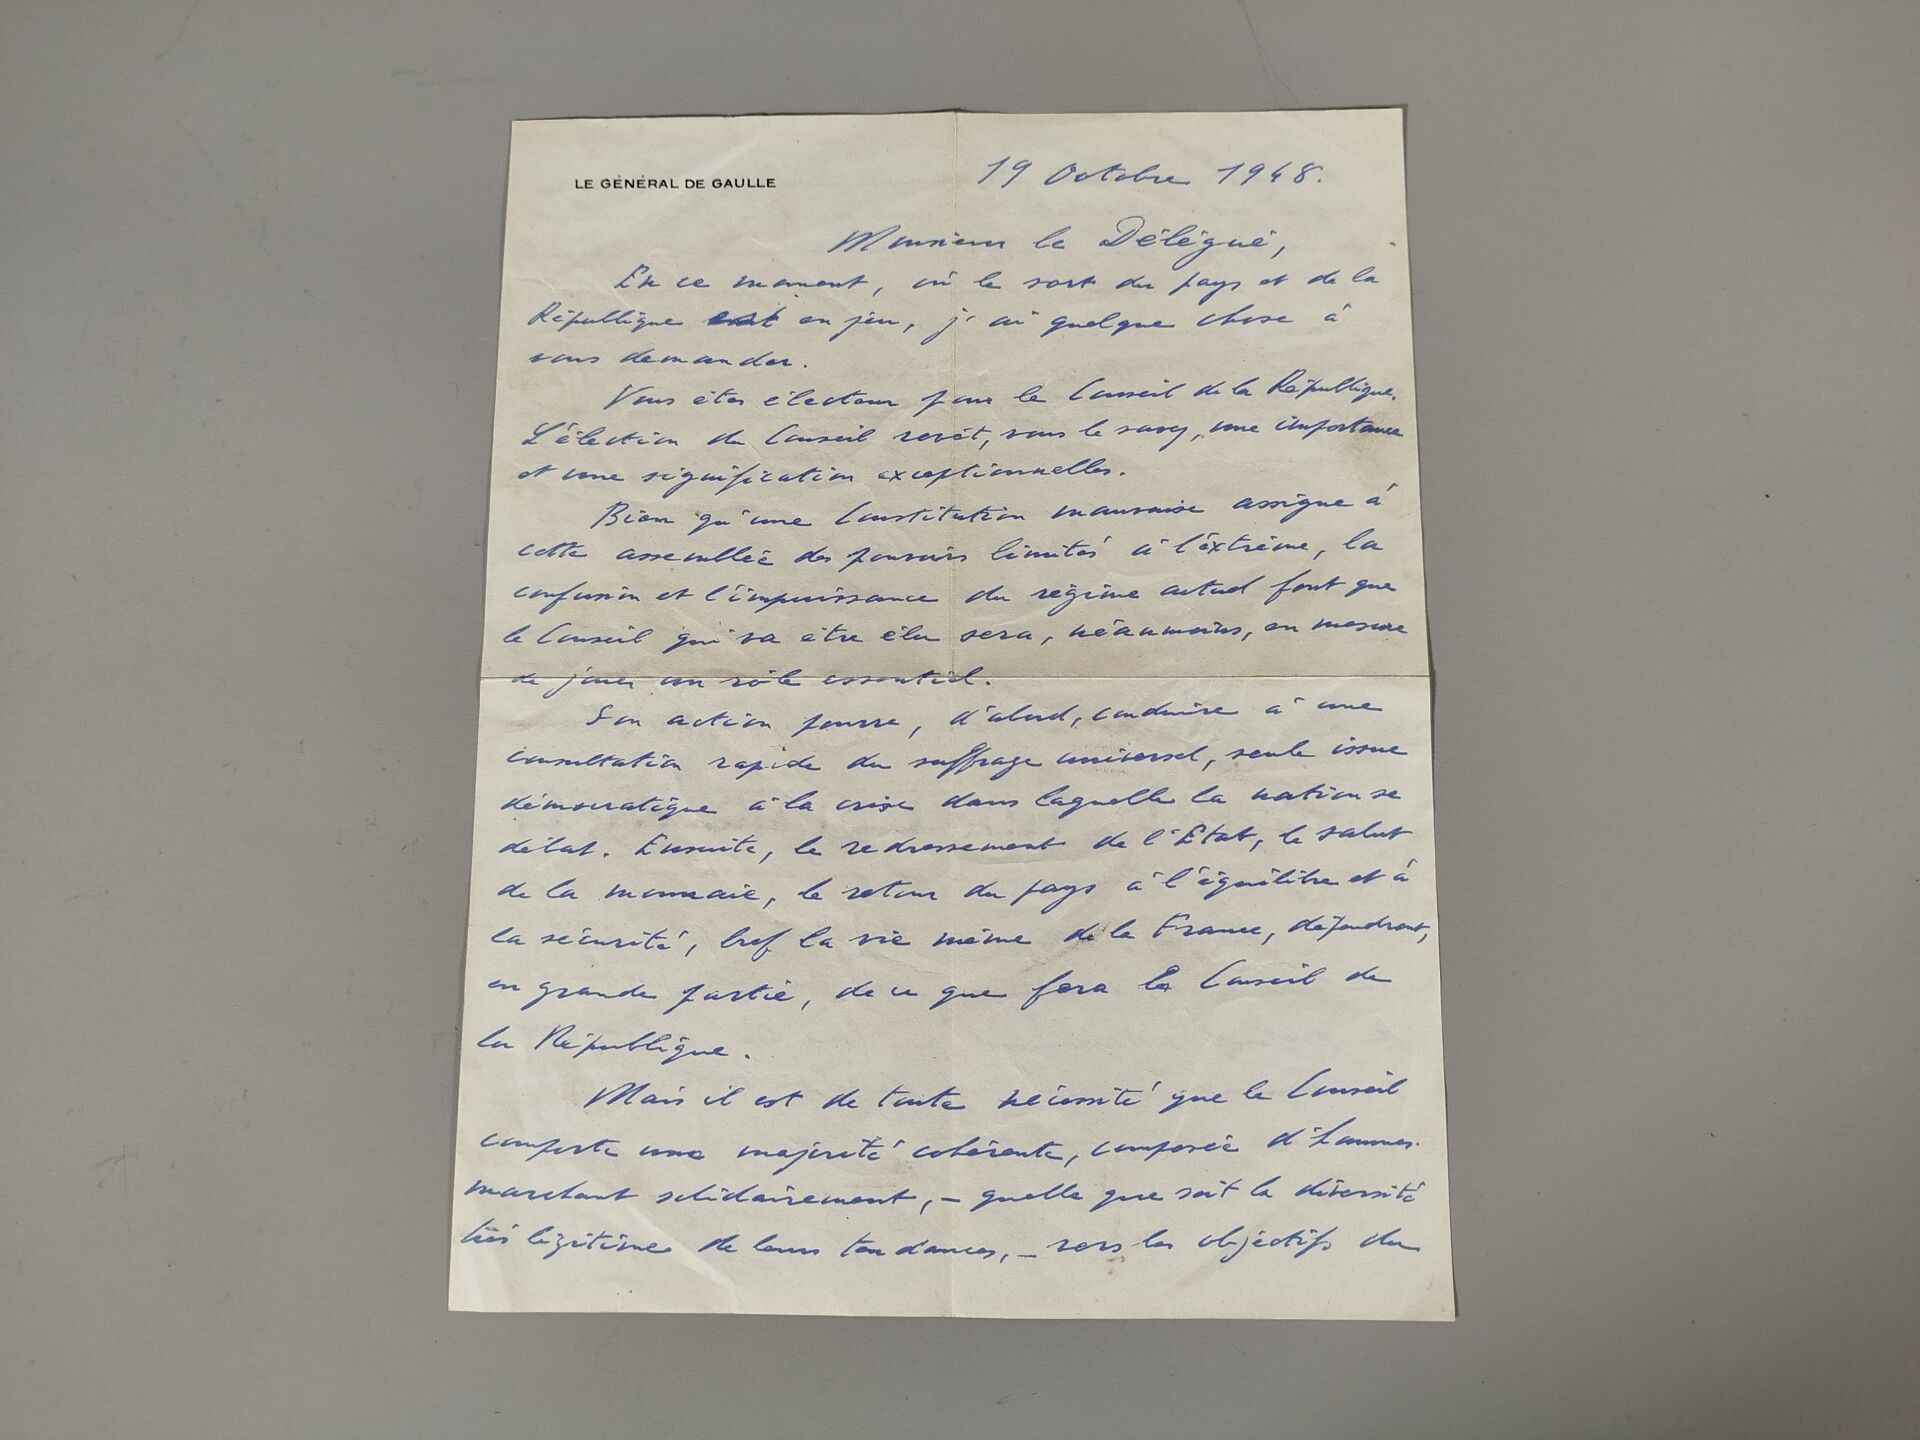 LE GÉNÉRAL DE GAULLE
19 Octobre 1948.
Monsieur le Délégué,
En ce moment, où le sort du pays et de la
République est en jeu, j'ai quelque chose à
vous demander.
Vous êtes électeur pour le Conseil de la République.
L'élection du Conseil revêt, vous le savez, une importance
et une signification exceptionnelles.
Bien qu'une Constitution mauvaise assigne à
cette assemblée des pouvoirs limités à l'extrême, la
confusion et l'impuissance du régime actuel font que
le Conseil qui va être élu sera, néanmoins, en mesure
de jouer un rôle essentiel.
Son action pourra, d'abord, conduire à une
consultation rapide du suffrage universel, seule issue
démocratique à la crise dans laquelle la nation se
débat. Ensuite, le redressement de l'Etat, le salut
de la monnaie, le retour du pays à l'équilibre et à
la sécurité, bref la vie même de la France, dépendront,
en grande partie, de ce que fera le Conseil de
la République.
Mais il est de toute nécessité que le Conseil
comporte une majorité cohérente, composée d'hommes
marchant solidairement, – quelle que soit la diversité
très légitime de leurs tendances, – vers les objectifs du